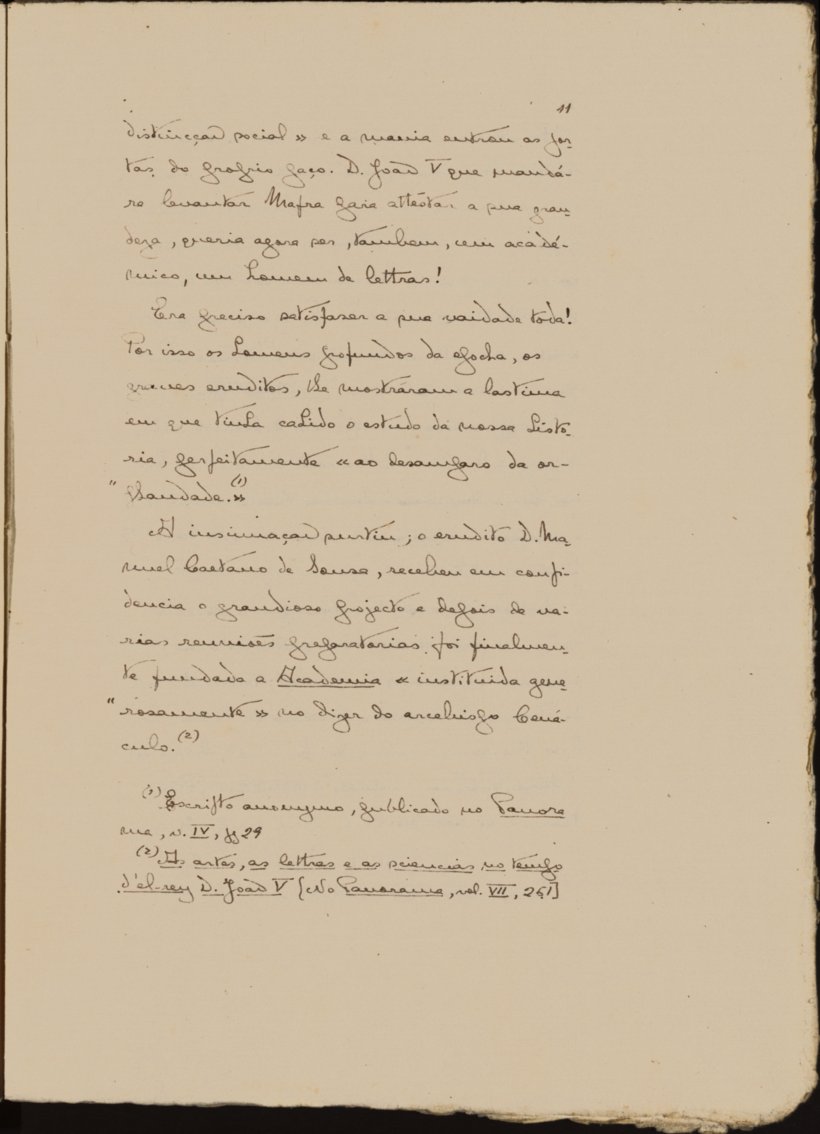 11
distincção social » e a mania entrou as por-
tas do proprio paço. D. João V que mandá-
ra levantar Mafra para attestar a sua gran-
deza, queria agora ser, tambem, um acadé-
mico, um homem de lettras!
Era preciso satisfazer a sua vaidade toda!
Por isso os homens profundos da epocha, os
graves eruditos, lhe mostráram a lastima
em que tinha cahido o estudo da nossa histo-
ria, perfeitamente « ao desamparo da or-
" phandade.» (1)
A insinuação surtiu; o erudito D. Ma-
nuel Caetano de Sousa, recebeu em confi-
dencia o grandioso projecto e depois de va-
rias reuniões preparatorias foi finalmen-
te fundada a Academia « instituida gene-
" rosamente » no dizer do arcebispo Cená-
culo. (2)
(1) Escripto anonymo, publicado no Panora
ma, v. IV, pg 29
(2) As artes, as lettras e as sciencias no tempo
d'el-rey D. João V [No Panorama, vol. VII, 261]